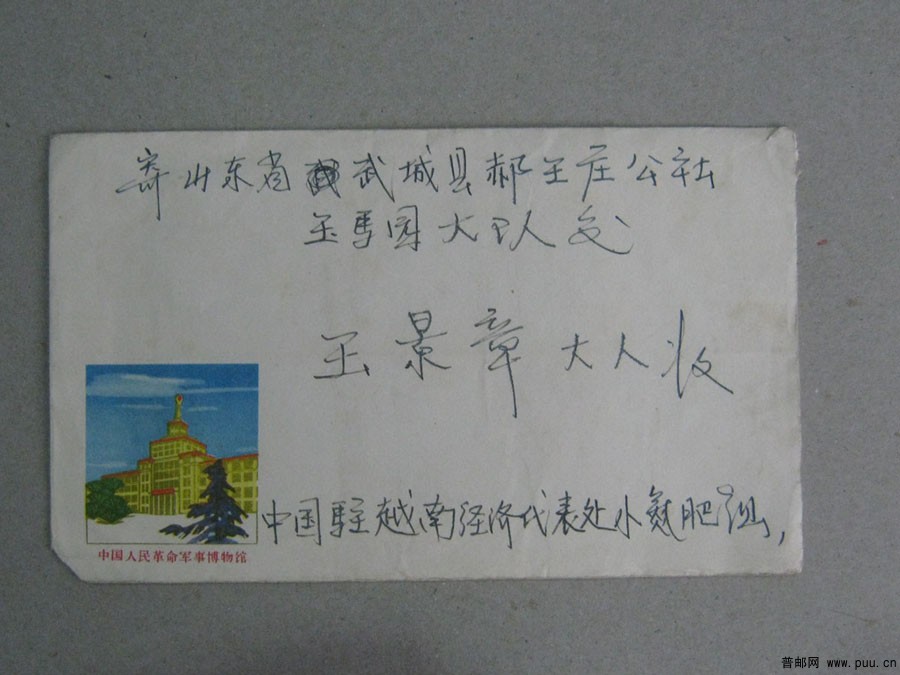 寄山东省武城县郝王庄公社
王马园大队交
王景章大人收
中国驻越南经济代表处小氮肥组,
中国人民革命军事博物馆
普邮网 www.puu.cn